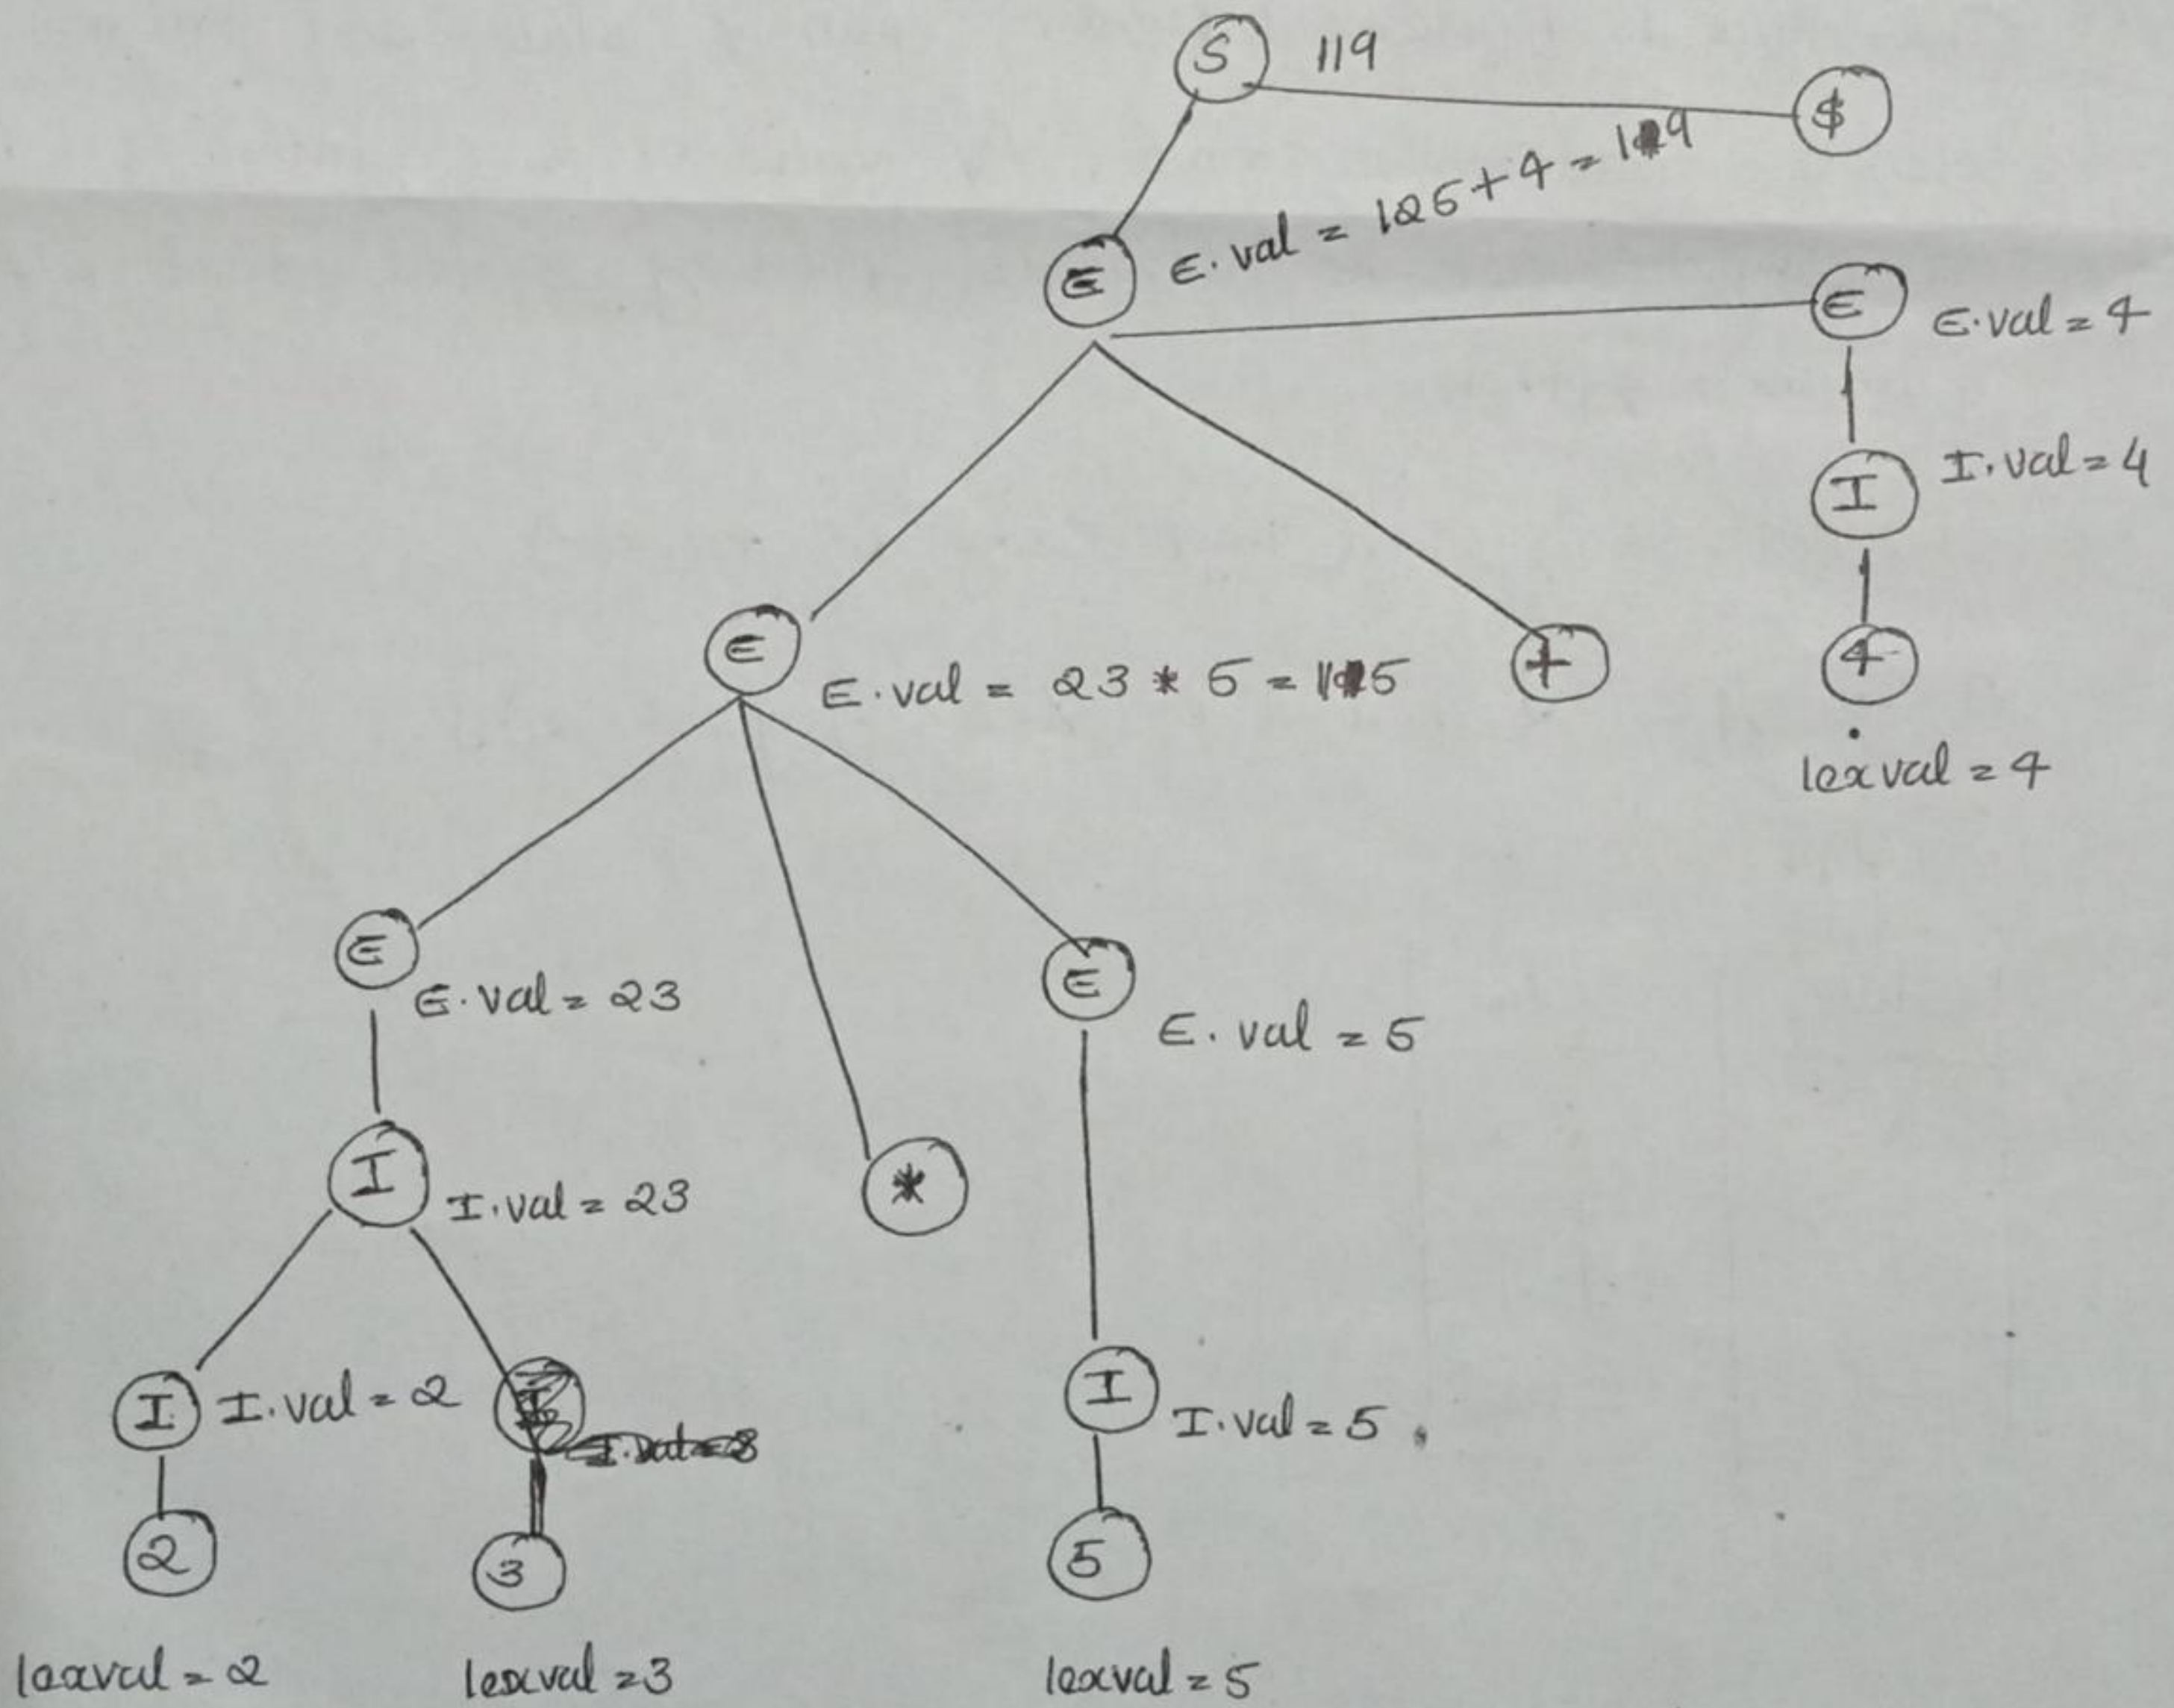 S 119
$
E E.val = 125+4 = 119
E E.val = 4
I I.val = 4
4
lexval = 4
E E.val = 23 * 5 = 115
+
E E.val = 23
E E.val = 5
I I.val = 23
*
I I.val = 2
I I.val = 5
2
3
5
lexval = 2
lexval = 3
lexval = 5